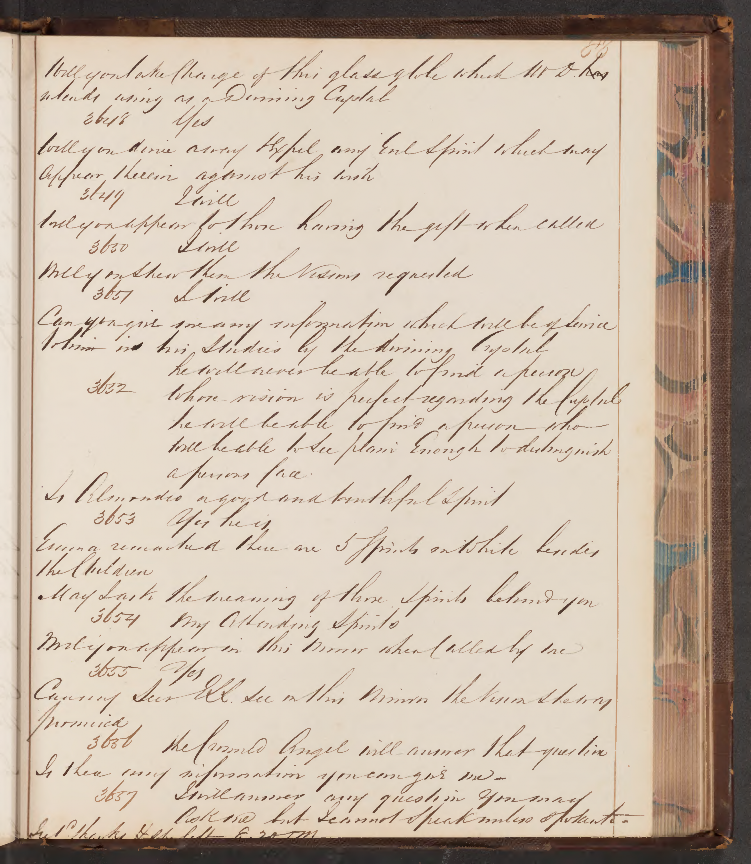 83
Will you take Charge of this glass globe which Mr D has
intends using as a Divining Crystal
3648 Yes
Will you drive away & Expel any Evil Spirit which may
appear therein against his wish
3649 I will
Will you appear to those having the gift when called
3650 I will
Will you shew them the Visions requested
3651 I will
Can you give me any information which will be of Service
to him in his Studies by the divining Crystal
he will never be able to find a person
3652 whose vision is perfect regarding the Crystal
he will be able to find a person who
will be able to See plain Enough to distinguish
a persons face
Is a good and truthful Spirit
3653 Yes he is
Emma remarked there are 5 Spirits in White besides
the Children
May I ask the meaning of those Spirits behind you
3654 My Attending Spirits
Will you appear in this Mirror when Called by me
3655 Yes
Can my Seer see in this Mirror the Vision She was
promised
3656 the Crowned Angel will answer that question
Is there any information you can give me
3657 I will answer any question You may
Ask me but I cannot speak unless spoken to